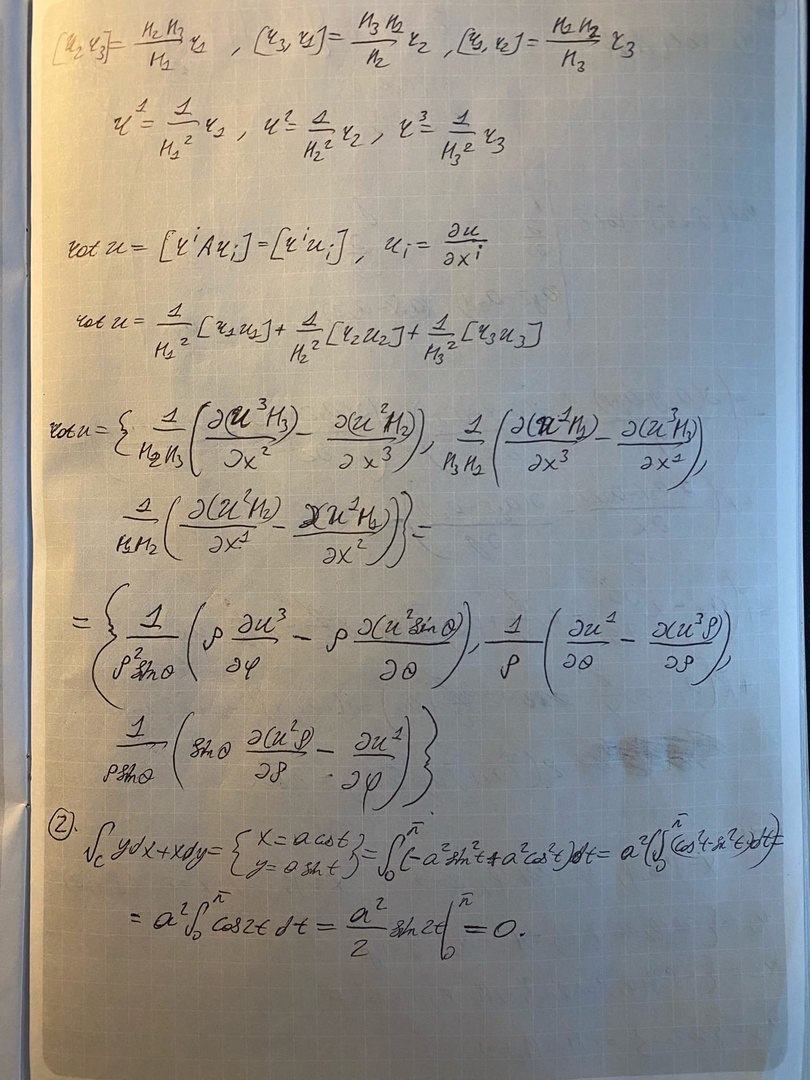 [r₂ r₃] = H₂H₃/H₁ r₁ , [r₃, r₁] = H₃H₁/H₂ r₂ , [r₁, r₂] = H₁H₂/H₃ r₃
r¹ = 1/H₁² r₁ , r² = 1/H₂² r₂ , r³ = 1/H₃² r₃
rot u = [rⁱ A rᵢ] = [rⁱ uᵢ] , uᵢ = ∂u/∂xⁱ
rot u = 1/H₁² [r₁u₁] + 1/H₂² [r₂u₂] + 1/H₃² [r₃u₃]
rot u = { 1/H₂H₃ ( ∂(u³H₃)/∂x² − ∂(u²H₂)/∂x³ ), 1/H₃H₁ ( ∂(u¹H₁)/∂x³ − ∂(u³H₃)/∂x¹ ),
1/H₁H₂ ( ∂(u²H₂)/∂x¹ − ∂(u¹H₁)/∂x² ) } =
= { 1/ρ² sin θ ( ρ ∂u³/∂φ − ρ ∂(u² sin θ)/∂θ ), 1/ρ ( ∂u¹/∂θ − ∂(u³ρ)/∂ρ ),
1/ρ sin θ ( sin θ ∂(u²ρ)/∂ρ − ∂u¹/∂φ ) }
②. ∫_C ydx + xdy = { x = a cos t y = a sin t } = ∫₀^π (−a² sin² t + a² cos² t) dt = a² (∫₀^π (cos² t − sin² t) dt) =
= a² ∫₀^π cos 2t dt = a²/2 sin 2t |₀^π = 0.